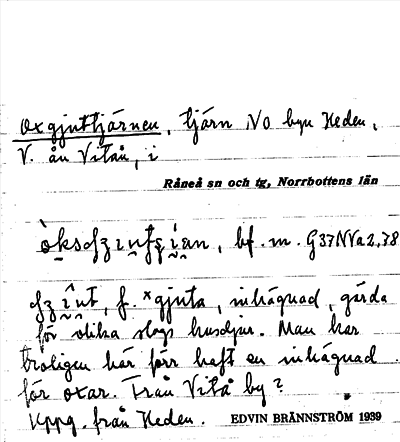 Oxgjuttjärnen, tjärn NO byn Heden,
V. ån Vitån, i
Råneå sn och tg, Norrbottens län
bf. m. G37NVa2,78
f. ˣgjuta, inhägnad, gärda
för olika slags husdjur. Man har
troligen här förr haft en inhägnad
för oxar. Från Vitå by?
Uppg. från Heden. EDVIN BRÄNNSTRÖM 1939